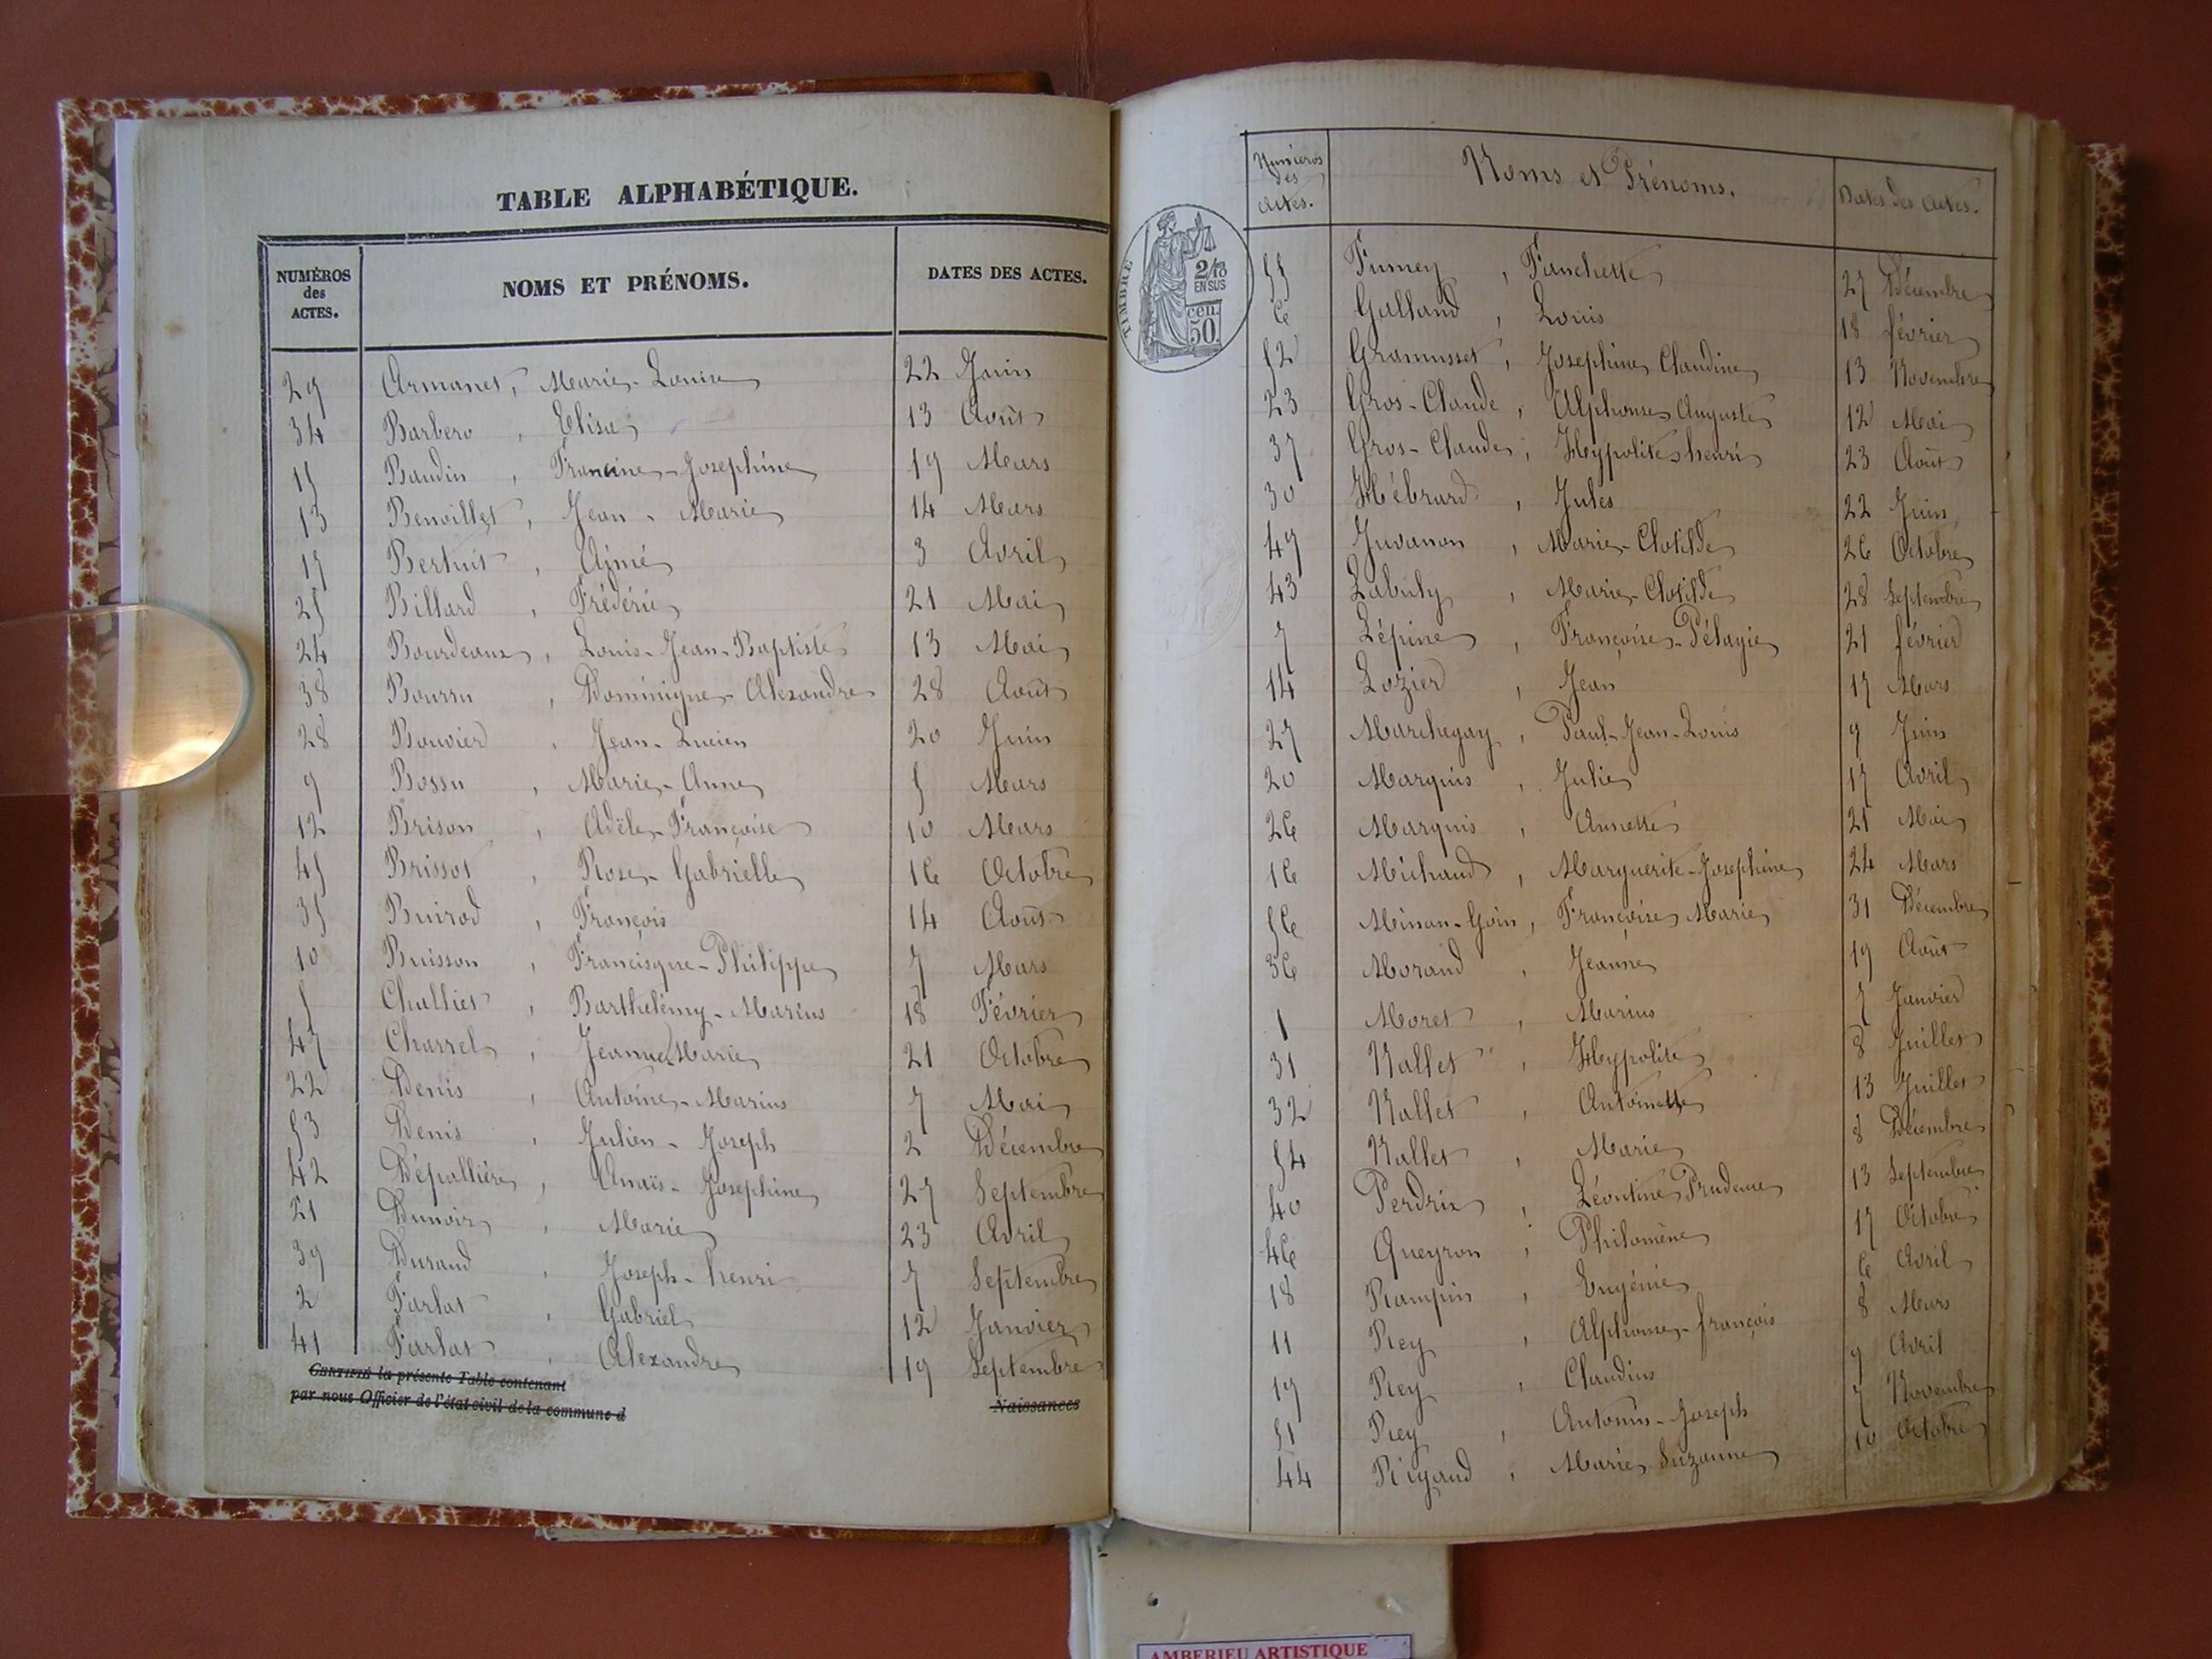 TABLE ALPHABÉTIQUE.
NUMÉROS des ACTES. NOMS ET PRÉNOMS. DATES DES ACTES.
29 Armanet, Marie-Louise 22 Juin
34 Barbero, Elisa 13 Août
15 Baudin, Francine-Josephine 19 Mars
13 Benoillet, Jean-Marie 14 Mars
17 Bertuit, Aimé 3 Avril
25 Billard, Frédéric 21 Mai
24 Bourdeaux, Louis-Jean-Baptiste 13 Mai
38 Bourru, Dominique-Alexandre 28 Août
28 Bouvier, Jean-Lucien 20 Juin
9 Bossu, Marie-Anne 5 Mars
12 Brison, Adèle-Françoise 10 Mars
45 Brissot, Rose-Gabrielle 16 Octobre
35 Buirod, François 14 Août
10 Buisson, Francisque-Philippe 7 Mars
5 Challiet, Barthelémy-Marius 18 Février
47 Charrel, Jeanne Marie 21 Octobre
22 Denis, Antoine-Marius 7 Mai
53 Denis, Julien-Joseph 2 Décembre
42 Dépallière, Anaïs-Josephine 27 Septembre
21 Dunoir, Marie 23 Avril
39 Durand, Joseph-henri 7 Septembre
2 Farlat, Gabriel 12 Janvier
41 Farlat, Alexandre 19 Septembre
CERTIFIÉ la présente Table contenant Naissances
par nous Officier de l'état civil de la commune d
TIMBRE
2/10
EN SUS
50 cen.
Numéros des Actes. Noms et Prénoms. Dates des Actes.
55 Fumey, Fanchette 27 Décembre
6 Galland, Louis 18 février
52 Gramusset, Josephine Claudine 13 Novembre
23 Gros-Claude, Alphonse Auguste 12 Mai
37 Gros-Claude, Hypolite henri 23 Août
30 Hébrard, Jules 22 Juin
49 Juvanon, Marie-Clotilde 26 Octobre
43 Labully, Marie-Clotilde 28 Septembre
7 Lépine, Françoise-Pélagie 21 février
14 Lozier, Jean 17 Mars
27 Marchegay, Paul-Jean-Louis 9 Juin
20 Marquis, Julie 17 Avril
26 Marquis, Annette 21 Mai
16 Michaud, Marguerite-Josephine 24 Mars
56 Minan-Goin, Françoise Marie 31 Décembre
36 Morand, Jeanne 19 Août
1 Moret, Marius 7 Janvier
31 Nallet, Hypolite 8 Juillet
32 Nallet, Antoinette 13 Juillet
54 Nallet, Marie 8 Décembre
40 Perdrix, Léontine Prudence 13 Septembre
46 Queyron, Philomène 17 Octobre
18 Rampin, Eugénie 6 Avril
11 Rey, Alphonse-françois 8 Mars
19 Rey, Claudius 9 Avril
51 Rey, Antonin-Joseph 7 Novembre
44 Rigaud, Marie Suzanne 10 Octobre
AMBERIEU ARTISTIQUE